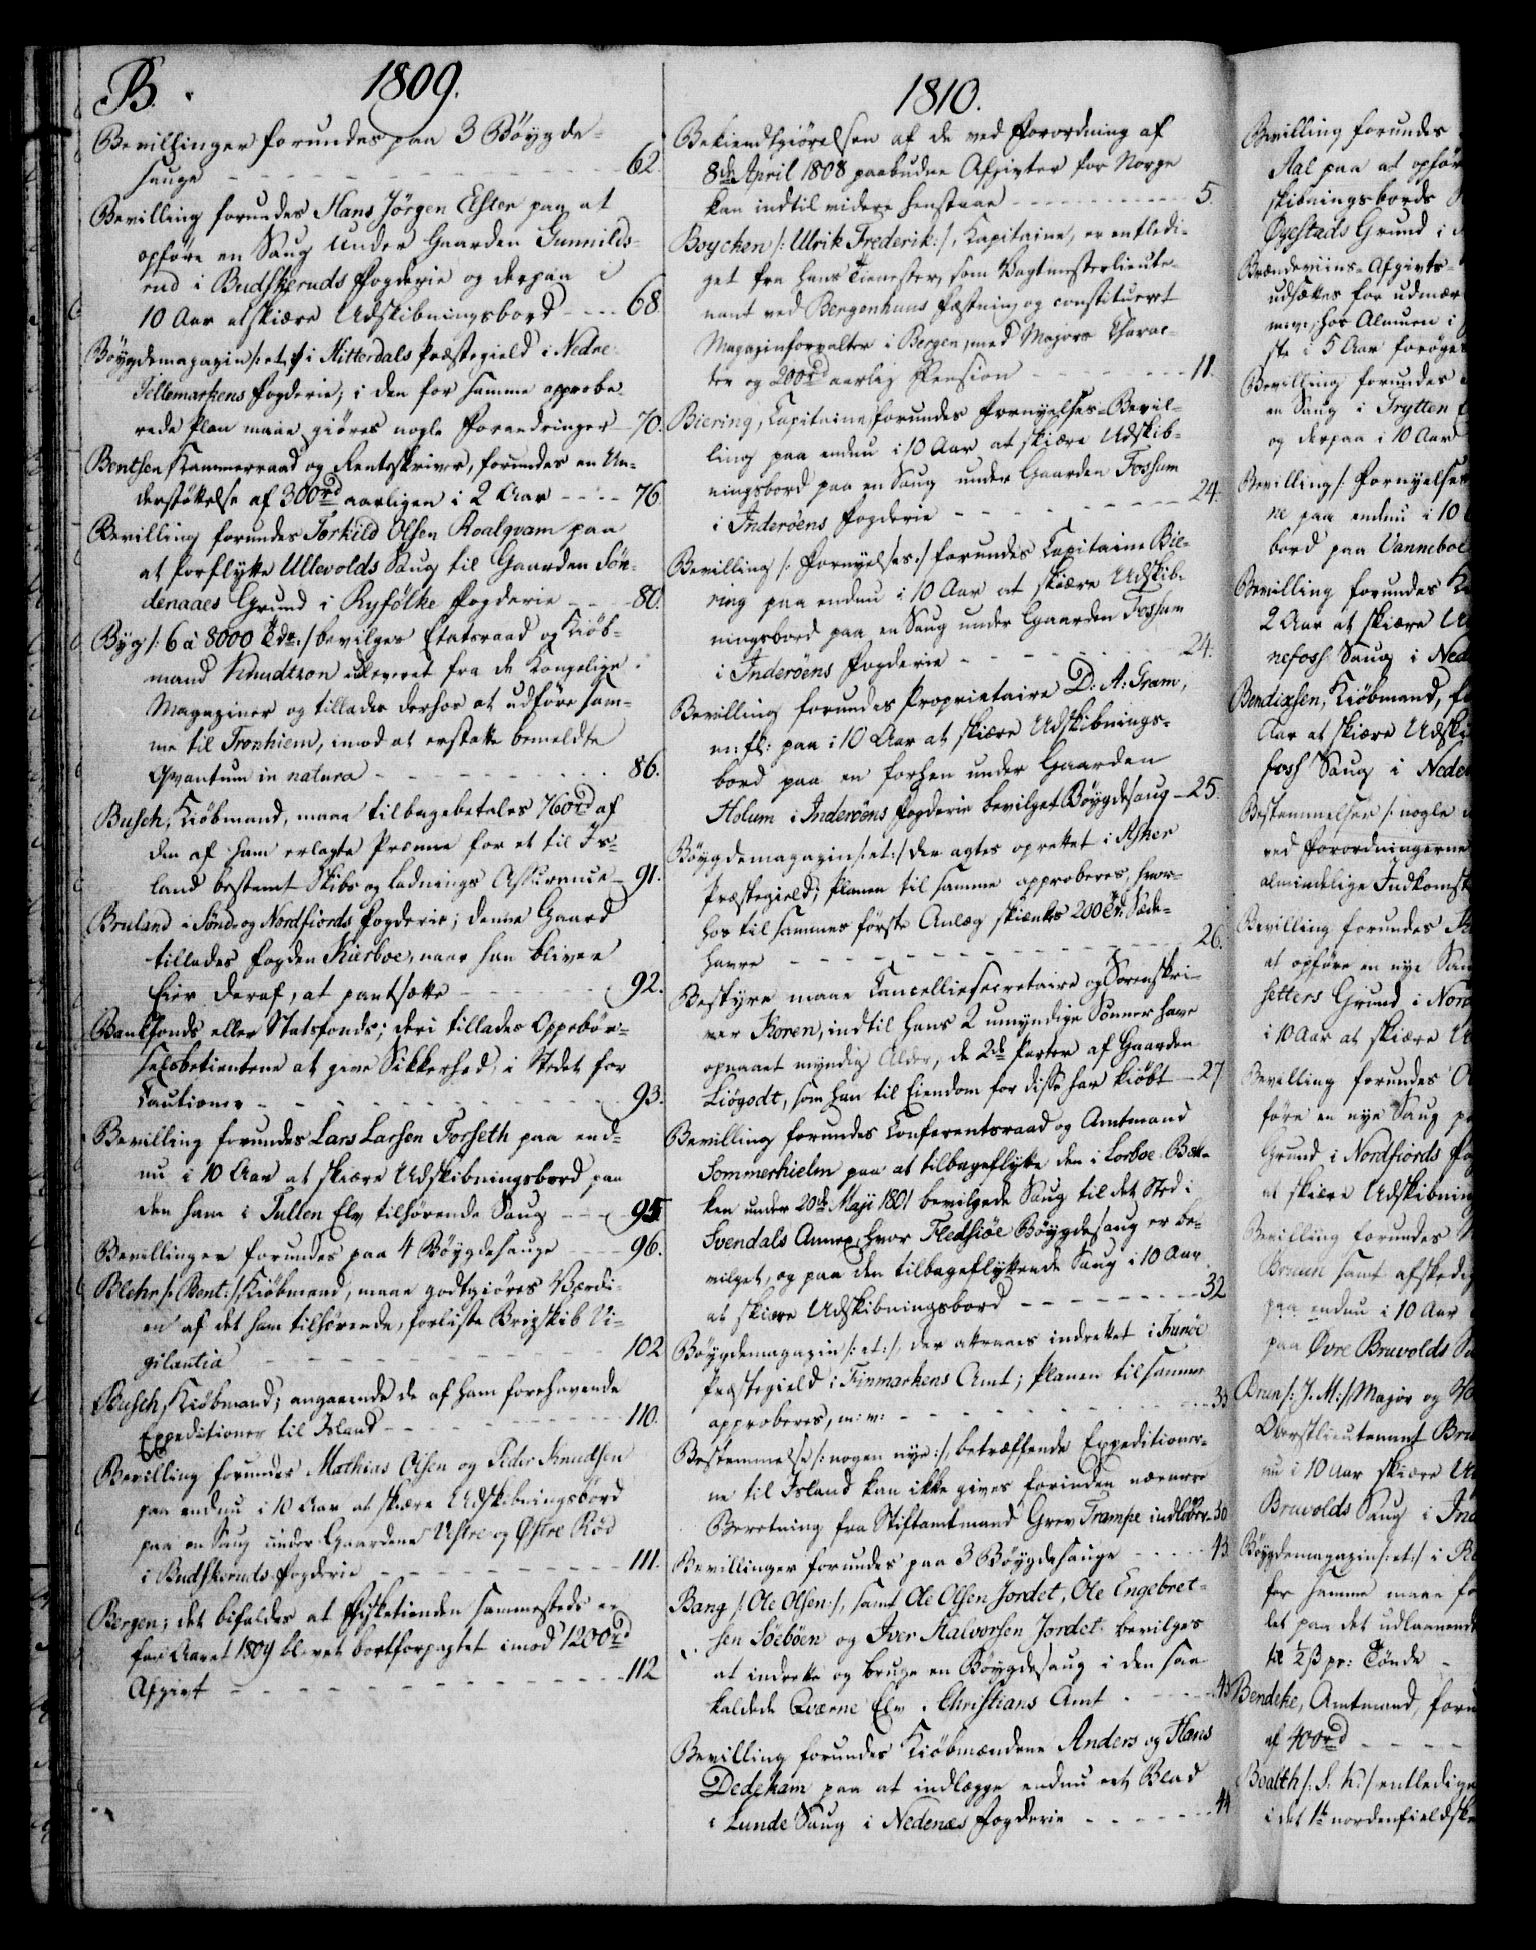 B.
1809.
Bevillinger forundes paa 3 Böygde-
sauge - - - 62.
Bevilling forundes Hans Jörgen Elster paa at
opföre en Saug under Gaarden Gunnilds-
rud i Budskeruds Fogderie og derpaa i
10 Aar at skiære Udskibningsbord - - - 68
Böygdemagazin /: et :/ i Hitterdals Præstegield i Nedre
Tellemarkens Fogderie; i den for samme approbe-
rede Plan maae giöres nogle Forandringer - 70.
Bentsen Kammerraad og Renteskriver, forundes en Un-
derstöttelse af 300rd aarligen i 2 Aar - - - 76.
Bevilling forundes Torkild Olsen Roalqvam paa
at forflytte Ullevolds Saug til Gaarden Sön-
denaaes Grund i Ryfölke Fogderie - - - 80.
Byg /: 6 à 8000 Tdr :/ bevilges Etatsraad og Kiöb-
mand Knudtzon udleveret fra de Kongelige
Magaziner og tillades derhos at udföre sam-
me til Tronhiem, imod at erstatte bemeldte
Qvantum in natura - - - 86.
Busch, Kiöbmand, maae tilbagebetales 760rd af
den af ham erlagte Præmie for et til Is-
land bestemt Skibs og Ladnings Assurance - 91.
Bruland i Sönd- og Nordfiords Fogderie; denne Gaard
tillades Fogden Kierboe, naar han bliver
Eier deraf, at pantsætte - - - 92.
Bankfonds eller Statsfonds; deri tillades Oppebör-
selsbetientene at give Sikkerhed, i Stedet for
Cautioner - - - 93.
Bevilling forundes Lars Larsen Forseth paa end-
nu i 10 Aar at skiære Udskibningsbord paa
den ham i Tullen Elv tilhörende Saug - - - 95
Bevillinger forundes paa 4 Böygdesauge - - - 96.
Blehr /: Bent :/ Kiöbmand, maae godtgiöres Værdi-
en af det ham tilhörende, forliste Brigskib Vi-
gilantia - - - 102
Busch, Kiöbmand; angaaende de af ham forehavende
Expeditioner til Island - - - 110.
Bevilling forundes Mathias Olsen og Peder Knudsen
paa endnu i 10 Aar at skiære Udskibningsbord
paa en Saug under Gaardene Vestre og Östre Röd
i Budskeruds Fogderie - - - 111.
Bergen; det bifaldes at Fisketienden sammesteds er
for Aaret 1809 blevet bortforpagtet imod 1200rd
Afgivt - - - 112
1810.
Bekiendtgiörelsen af de ved Forordning af
8de April 1808 paabudne Afgivter for Norge
kan indtil videre henstaae - - - 5.
Boycken /: Ulrik Frederik :/, Kapitaine, er entledi-
get fra hans Tienester, som Vagtmesterlieute-
nant ved Bergenhuus Fæstning og constitueret
Magazinforvalter i Bergen, med Majors Charac-
ter og 200rd aarlig Pension - - - 11.
Biering, Capitaine, forundes Fornyelses-Bevil-
ling paa endnu i 10 Aar at skiære Udskib-
ningsbord paa en Saug under Gaarden Fossum
i Inderöens Fogderie - - - 24.
Bevilling /: Fornyelses :/ forundes Capitaine Bie-
ring paa endnu i 10 Aar at skiære Udskib-
ningsbord paa en Saug under Gaarden Fossum
i Inderöens Fogderie - - - 24.
Bevilling forundes Proprietaire D: A: Gram,
m: fl: paa i 10 Aar at skiære Udskibnings-
bord paa en forhen under Gaarden
Holum i Inderöens Fogderie bevilget Böygdesaug - 25.
Böygdemagazin /: et :/ der agtes oprettet i Asker
Præstegield; Planen til samme approberes, hvor-
hos til sammes förste Anlæg skienkes 200 Tdr: Sæde-
havre - - - 26.
Bestyre maae Cancelliesecretaire og Sorenskri-
ver Koren, indtil hans 2 umyndige Sönner have
opnaaet myndig Alder, de 2de Parter af Gaarden
Liögodt, som han til Eiendom for disse har kiöbt - 27
Bevilling forundes Conferentsraad og Amtmand
Sommerhielm paa at tilbageflytte den i Lorboe Bek-
ken under 20de Maji 1801 bevilgede Saug til det Sted i
Svendals Annex, hvor Fledsiöe Böygdesaug er be-
vilget, og paa den tilbageflyttende Saug i 10 Aar
at skiære Udskibningsbord - - - 32
Böygdemagazin /: et :/, der attraaes indrettet i Tranöe
Præstegield i Finmarkens Amt; Planen til samme
approberes, m: v: - - - 33
Bestemmelse /: nogen nye :/, betræffende Expeditioner-
ne til Island kan ikke gives forinden nærmere
Beretning fra Stiftamtmand Grev Trampe indlöber - 30
Bevillinger forundes paa 3 Böygdesauge - - - 43.
Bang /: Ole Olsen :/, samt Ole Olsen Jordet, Ole Engebret-
sen Söeböen og Iver Halvorsen Jordet bevilges
at indrette og bruge en Böygdesaug i den saa-
kaldede Qværne Elv i Christians Amt - - - 43
Bevilling forundes Kiöbmændene Anders og Hans
Dedekam paa at indlægge endnu eet Blad
i Lunde Saug i Nedenæs Fogderie - - - 44
Bevilling forundes
Aal paa at opför
skibningsbords
Øgestads Grund i
Brændeviins-Afgivts-
udsættes for udmær
hos Almuen i
ste i 5 Aar forøges
Bevilling forundes
en Saug i Trytten
og derpaa i 10 Aar
Bevilling /: Fornyelses
ne paa endnu i 10
bord paa Vanneboe
Bevilling forundes
2 Aar at skiære U
nefoss Saug i Ned
Bendixsen, Kiöbmand, f
Aar at skiære Udski
foss Saug i Neden
Bestemmelser /: nogle
ved Forordningerne
almindelige Indkomst
Bevilling forundes
at opföre en nye Sau
setters Grund i Nord
i 10 Aar at skiære U
Bevilling forundes O
före en nye Saug p
Grund i Nordfiords Fo
at skiære Udskibning
Bevilling forundes
Bruun samt afskedig
paa endnu i 10 Aar
paa Øvre Bruvolds Sa
Brun /: J. M :/ Major og
Oberstlieutenant Bru
nu i 10 Aar skiære U
Bruvolds Saug i Ind
Böygdemagazin /: et :/ i R
for samme maae fo
let paa det udlaanende
til 1/2 ß pr: Tönde -
Bendeke, Amtmand, foru
af 400rd - - -
Boalth /: S. K: / entledige
i det 1te nordenfieldske